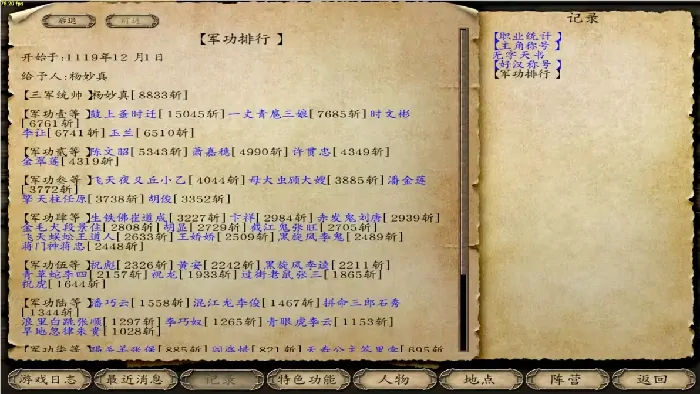 78.20 fps
后退
前进
【军功排行 】
开始于:1119年12 月1日
给予人:杨妙真
【三军统帅 】杨妙真[ 8833斩]
【军功壹等 】鼓上蚤时迁[ 15045斩]一丈青扈三娘[ 7685斩] 时文彬
[ 6761斩]
李让[ 6741斩] 玉兰[ 6510斩]
【军功贰等 】陈文昭[ 5343斩] 萧嘉穗[ 4990斩] 许贯忠[ 4349斩]
金翠莲[ 4319斩]
【军功叁等 】飞天夜叉丘小乙[ 4044斩] 母大虫顾大嫂[ 3885斩] 潘金莲
[ 3772斩]
擎天柱任原[ 3738斩] 胡俊[ 3352斩]
【军功肆等 】生铁佛崔道成[ 3227斩] 卞祥[ 2984斩] 赤发鬼刘唐[ 2939斩]
金毛犬段景住[ 2808斩] 胡显[ 2729斩] 截江鬼张旺[ 2705斩]
飞天蜈蚣王道人[ 2633斩] 王娇娇[ 2509斩] 黑旋风李鬼[ 2489斩]
蒋门神蒋忠[ 2448斩]
【军功伍等 】祝彪[ 2326斩] 黄安[ 2242斩] 黑旋风李逵[ 2211斩]
青草蛇李四[ 2157斩] 祝龙[ 1933斩] 过街老鼠张三[ 1865斩]
祝虎[ 1644斩]
【军功陆等 】潘巧云[ 1558斩] 混江龙李俊[ 1467斩] 拼命三郎石秀
[ 1344斩]
浪里白跳张顺[ 1297斩] 李巧奴[ 1265斩] 青眼虎李云[ 1153斩]
旱地忽律朱贵[ 1028斩]
【军功柒等
[ 885斩]
[ 821斩]
[ 695斩
记录
【职业统计 】
【主角称号 】
无字天书
【好汉称号 】
【军功排行 】
游戏日志
最近消息
记录
特色功能
人物
地点
阵营
返回